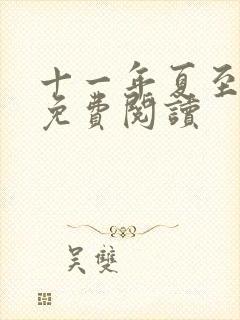 十一年夏至
免費閱讀
吴雙